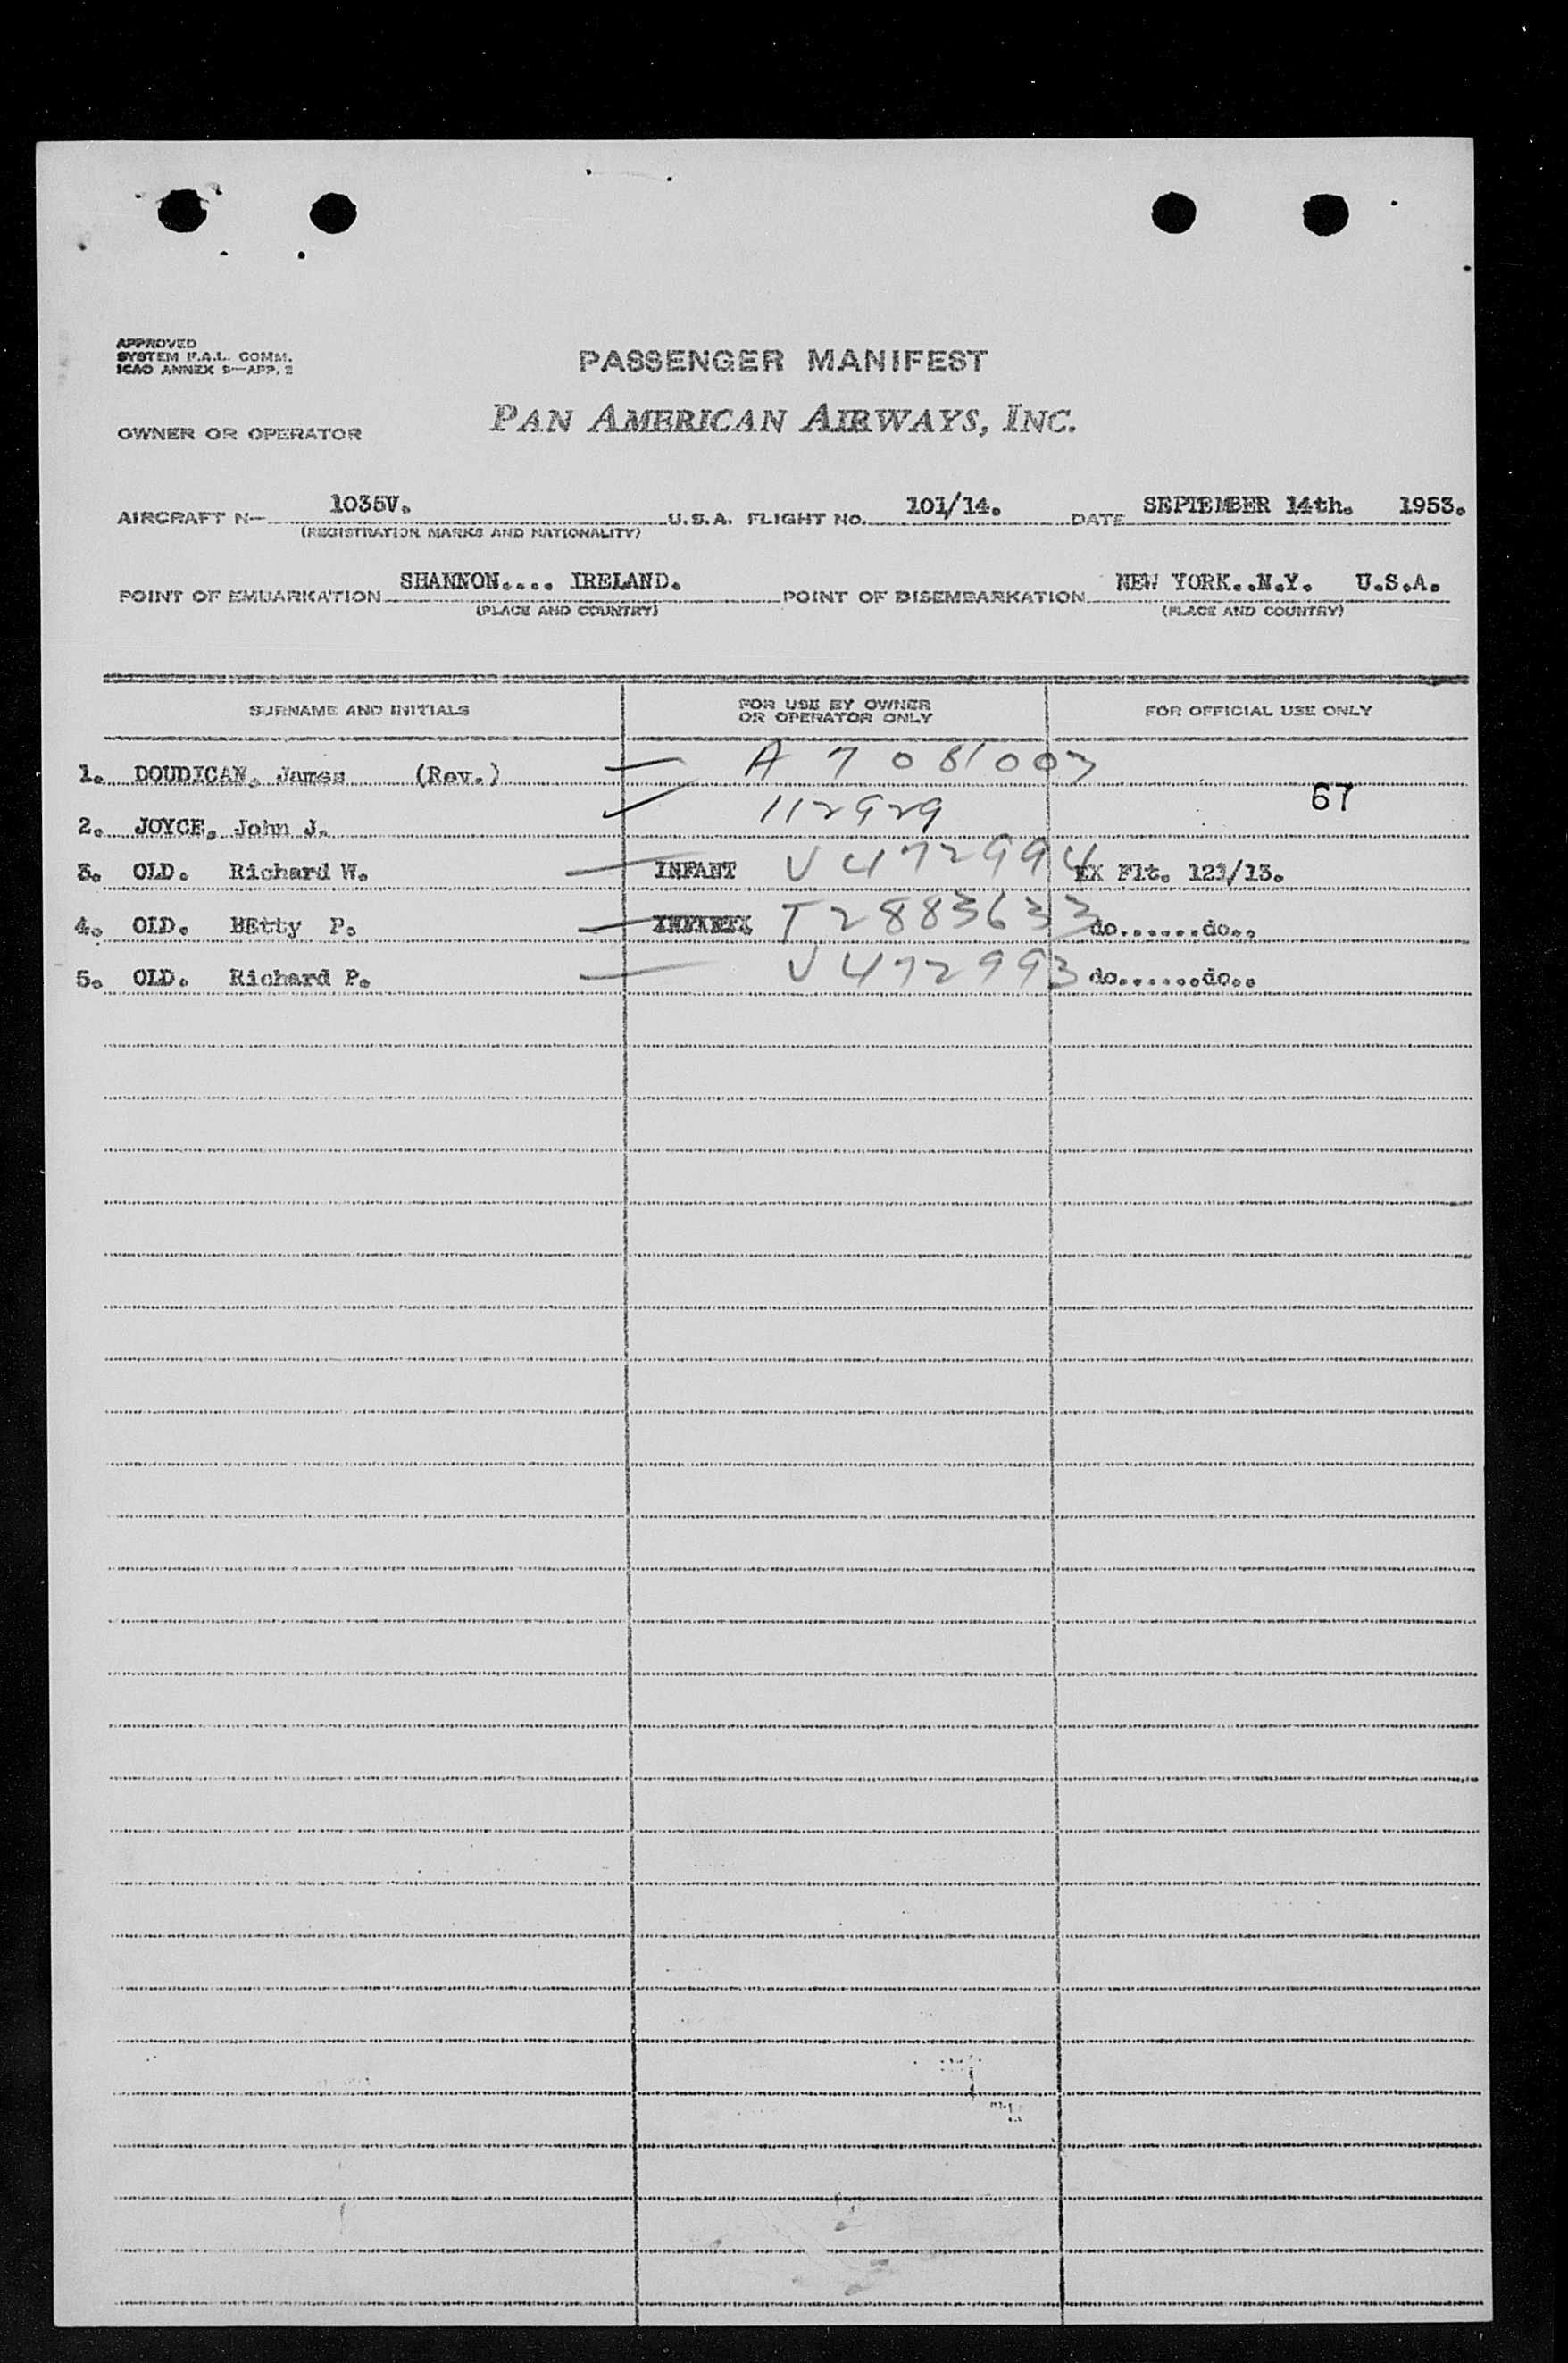 APPROVED
SYSTEM F.A.L. COMM.
ICAO ANNEX 9—APP. 2
PASSENGER MANIFEST
OWNER OR OPERATOR
PAN AMERICAN AIRWAYS, INC.
AIRCRAFT N— 1035V. U.S.A. FLIGHT No. 101/14. DATE SEPTEMBER 14th. 1953.
(REGISTRATION MARKS AND NATIONALITY)
POINT OF EMBARKATION SHANNON.... IRELAND. POINT OF DISEMBARKATION NEW YORK..N.Y. U.S.A.
(PLACE AND COUNTRY) (PLACE AND COUNTRY)
SURNAME AND INITIALS FOR USE BY OWNER OR OPERATOR ONLY FOR OFFICIAL USE ONLY
1. DOUDICAN, James (Rev.) — A 7 081003
67
2. JOYCE, John J. ✓ 112929
3. OLD. Richard W. — INFANT V 472994 EX Flt. 121/13.
4. OLD. BEtty P. — T 2883633 do......do..
5. OLD. Richard P. — V 472993 do......do..